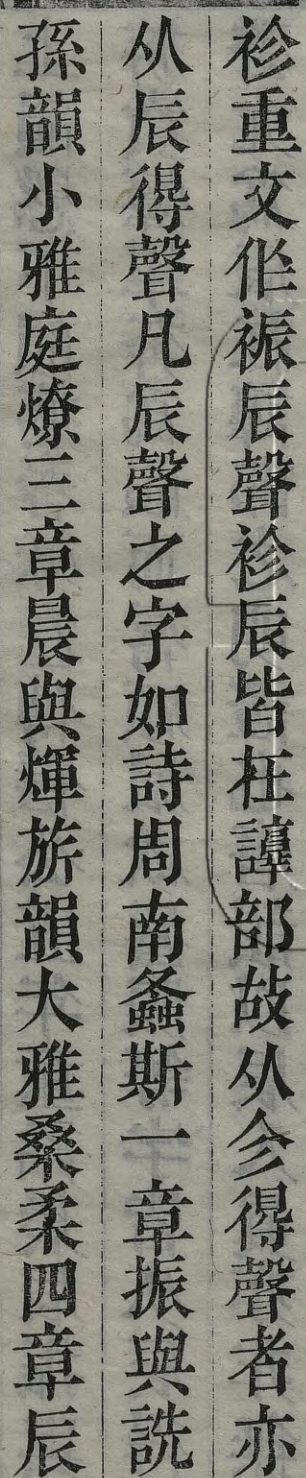 袗重文作裖辰聲袗辰皆在諄部故从㐱得聲者亦
从辰得聲凡辰聲之字如詩周南螽斯一章振與詵
孫韻小雅庭燎三章晨與煇旂韻大雅桑柔四章辰